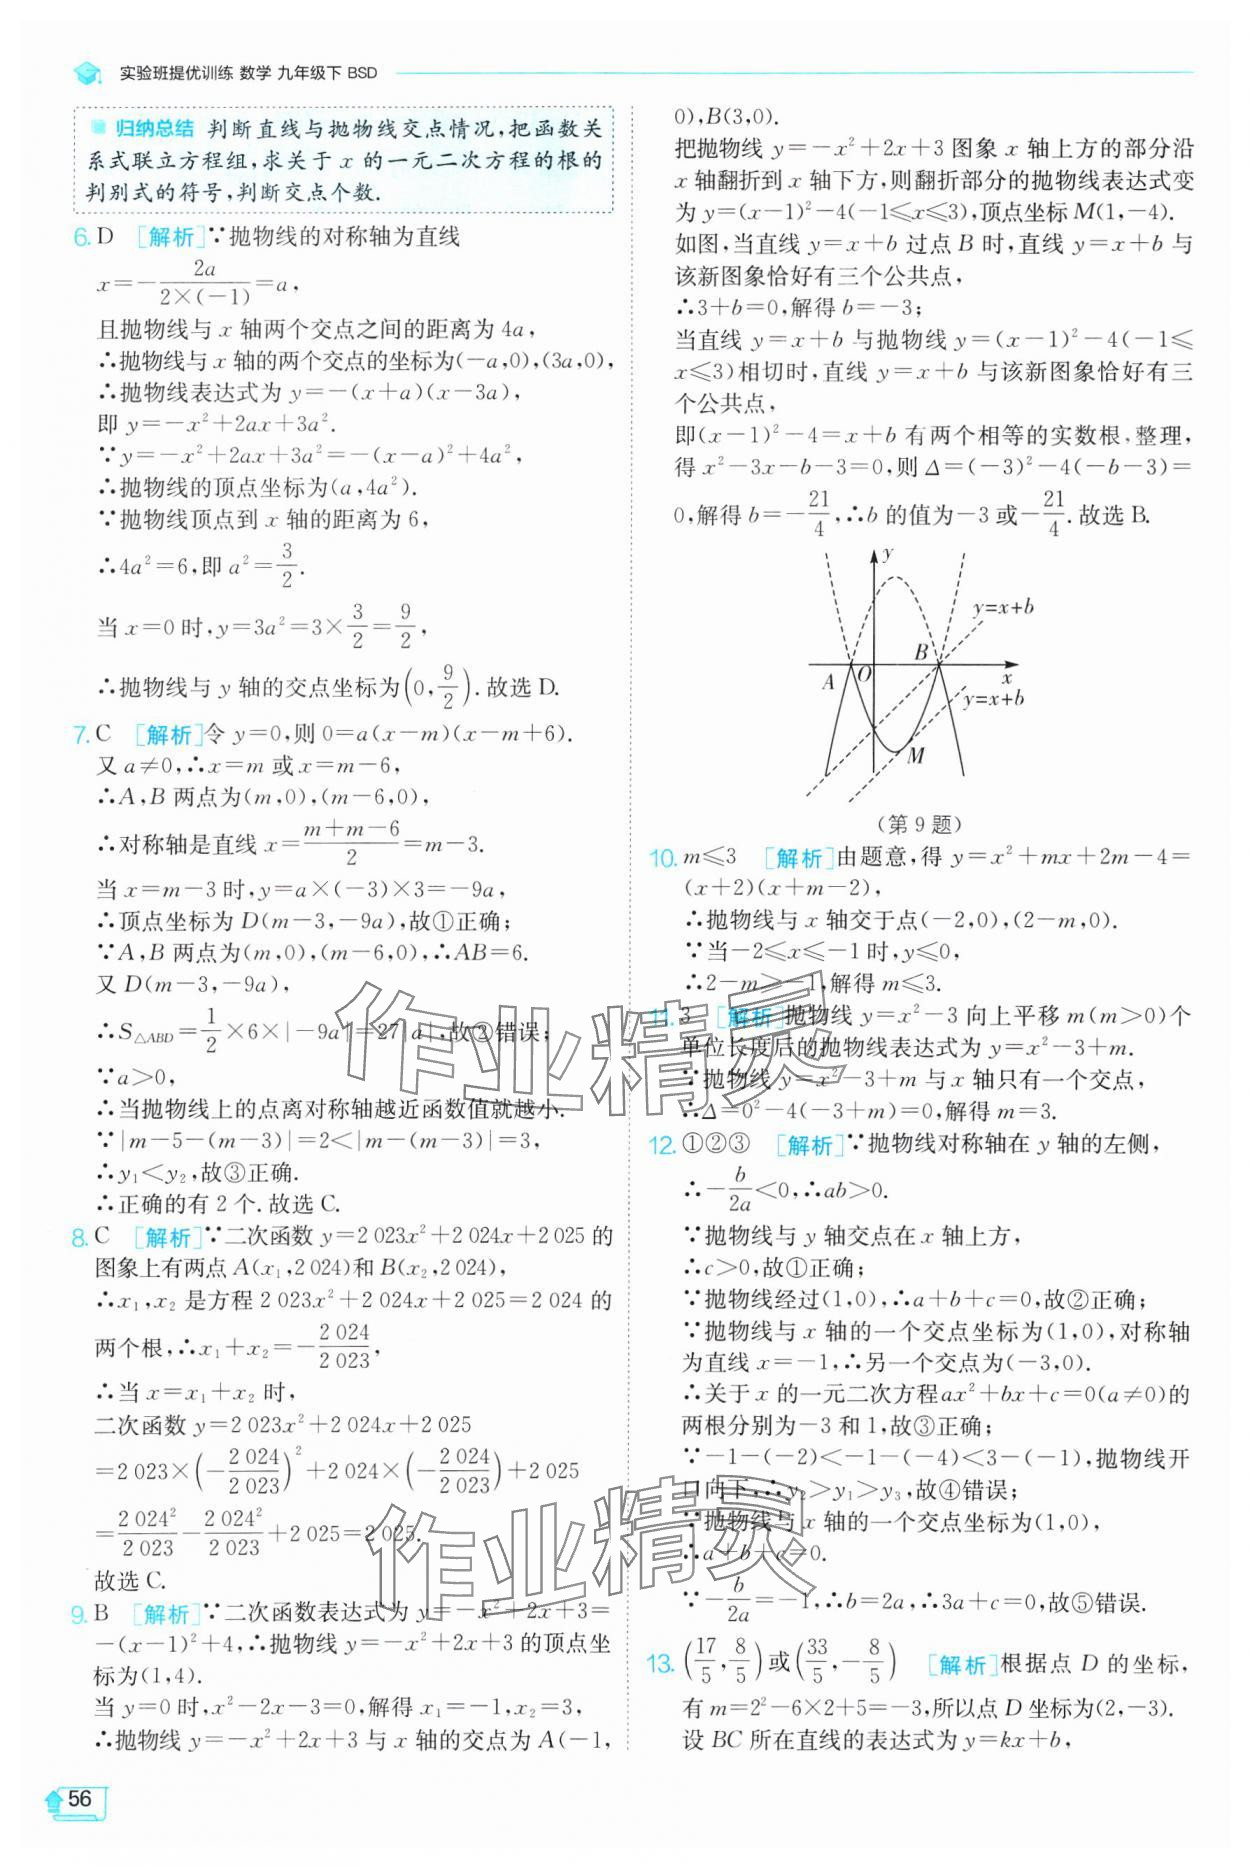 实验班提优训练 数学 九年级下 BSD
归纳总结 判断直线与抛物线交点情况,把函数关
系式联立方程组,求关于 x 的一元二次方程的根的
判别式的符号,判断交点个数.
6. D [解析]∵抛物线的对称轴为直线
x=-2a/(2×(-1))=a,
且抛物线与 x 轴两个交点之间的距离为 4a,
∴抛物线与 x 轴的两个交点的坐标为(-a,0),(3a,0),
∴抛物线表达式为 y=-(x+a)(x-3a),
即 y=-x²+2ax+3a².
∵y=-x²+2ax+3a²=-(x-a)²+4a²,
∴抛物线的顶点坐标为(a,4a²).
∵抛物线顶点到 x 轴的距离为 6,
∴4a²=6,即 a²=3/2.
当 x=0 时,y=3a²=3×3/2=9/2,
∴抛物线与 y 轴的交点坐标为(0,9/2).故选 D.
7. C [解析]令 y=0,则 0=a(x-m)(x-m+6).
又 a≠0,∴x=m 或 x=m-6,
∴A,B 两点为(m,0),(m-6,0),
∴对称轴是直线 x=(m+m-6)/2=m-3.
当 x=m-3 时,y=a×(-3)×3=-9a,
∴顶点坐标为 D(m-3,-9a),故①正确;
∵A,B 两点为(m,0),(m-6,0),∴AB=6.
又 D(m-3,-9a),
∴S△ABD=1/2×6×|-9a|=27|a|,故②错误;
∵a>0,
∴当抛物线上的点离对称轴越近函数值就越小.
∵|m-5-(m-3)|=2<|m-(m-3)|=3,
∴y₁<y₂,故③正确.
∴正确的有 2 个.故选 C.
8. C [解析]∵二次函数 y=2 023x²+2 024x+2 025 的
图象上有两点 A(x₁,2 024)和 B(x₂,2 024),
∴x₁,x₂ 是方程 2 023x²+2 024x+2 025=2 024 的
两个根,∴x₁+x₂=-2 024/2 023,
∴当 x=x₁+x₂ 时,
二次函数 y=2 023x²+2 024x+2 025
=2 023×(-2 024/2 023)²+2 024×(-2 024/2 023)+2 025
=2 024²/2 023-2 024²/2 023+2 025=2 025.
故选 C.
9. B [解析]∵二次函数表达式为 y=-x²+2x+3=
-(x-1)²+4,∴抛物线 y=-x²+2x+3 的顶点坐
标为(1,4).
当 y=0 时,x²-2x-3=0,解得 x₁=-1,x₂=3,
∴抛物线 y=-x²+2x+3 与 x 轴的交点为 A(-1,
56
0),B(3,0).
把抛物线 y=-x²+2x+3 图象 x 轴上方的部分沿
x 轴翻折到 x 轴下方,则翻折部分的抛物线表达式变
为 y=(x-1)²-4(-1≤x≤3),顶点坐标 M(1,-4).
如图,当直线 y=x+b 过点 B 时,直线 y=x+b 与
该新图象恰好有三个公共点,
∴3+b=0,解得 b=-3;
当直线 y=x+b 与抛物线 y=(x-1)²-4(-1≤
x≤3)相切时,直线 y=x+b 与该新图象恰好有三
个公共点,
即(x-1)²-4=x+b 有两个相等的实数根,整理,
得 x²-3x-b-3=0,则 Δ=(-3)²-4(-b-3)=
0,解得 b=-21/4,∴b 的值为-3 或-21/4.故选 B.
y
y=x+b
A O B x
y=x+b
M
(第 9 题)
10. m≤3 [解析]由题意,得 y=x²+mx+2m-4=
(x+2)(x+m-2),
∴抛物线与 x 轴交于点(-2,0),(2-m,0).
∵当-2≤x≤-1 时,y≤0,
∴2-m≥-1,解得 m≤3.
11. 3 [解析]抛物线 y=x²-3 向上平移 m(m>0)个
单位长度后的抛物线表达式为 y=x²-3+m.
∵抛物线 y=x²-3+m 与 x 轴只有一个交点,
∴Δ=0²-4(-3+m)=0,解得 m=3.
12. ①②③ [解析]∵抛物线对称轴在 y 轴的左侧,
∴-b/2a<0,∴ab>0.
∵抛物线与 y 轴交点在 x 轴上方,
∴c>0,故①正确;
∵抛物线经过(1,0),∴a+b+c=0,故②正确;
∵抛物线与 x 轴的一个交点坐标为(1,0),对称轴
为直线 x=-1,∴另一个交点为(-3,0).
∴关于 x 的一元二次方程ax²+bx+c=0(a≠0)的
两根分别为-3 和 1,故③正确;
∵-1-(-2)<-1-(-4)<3-(-1),抛物线开
口向下,∴y₂>y₁>y₃,故④错误;
∵抛物线与 x 轴的一个交点坐标为(1,0),
∴a+b+c=0.
∵-b/2a=-1,∴b=2a,∴3a+c=0,故⑤错误.
13. (17/5,8/5)或(33/5,-8/5) [解析]根据点 D 的坐标,
有 m=2²-6×2+5=-3,所以点 D 坐标为(2,-3).
设 BC 所在直线的表达式为 y=kx+b,
作业精灵
作业精灵